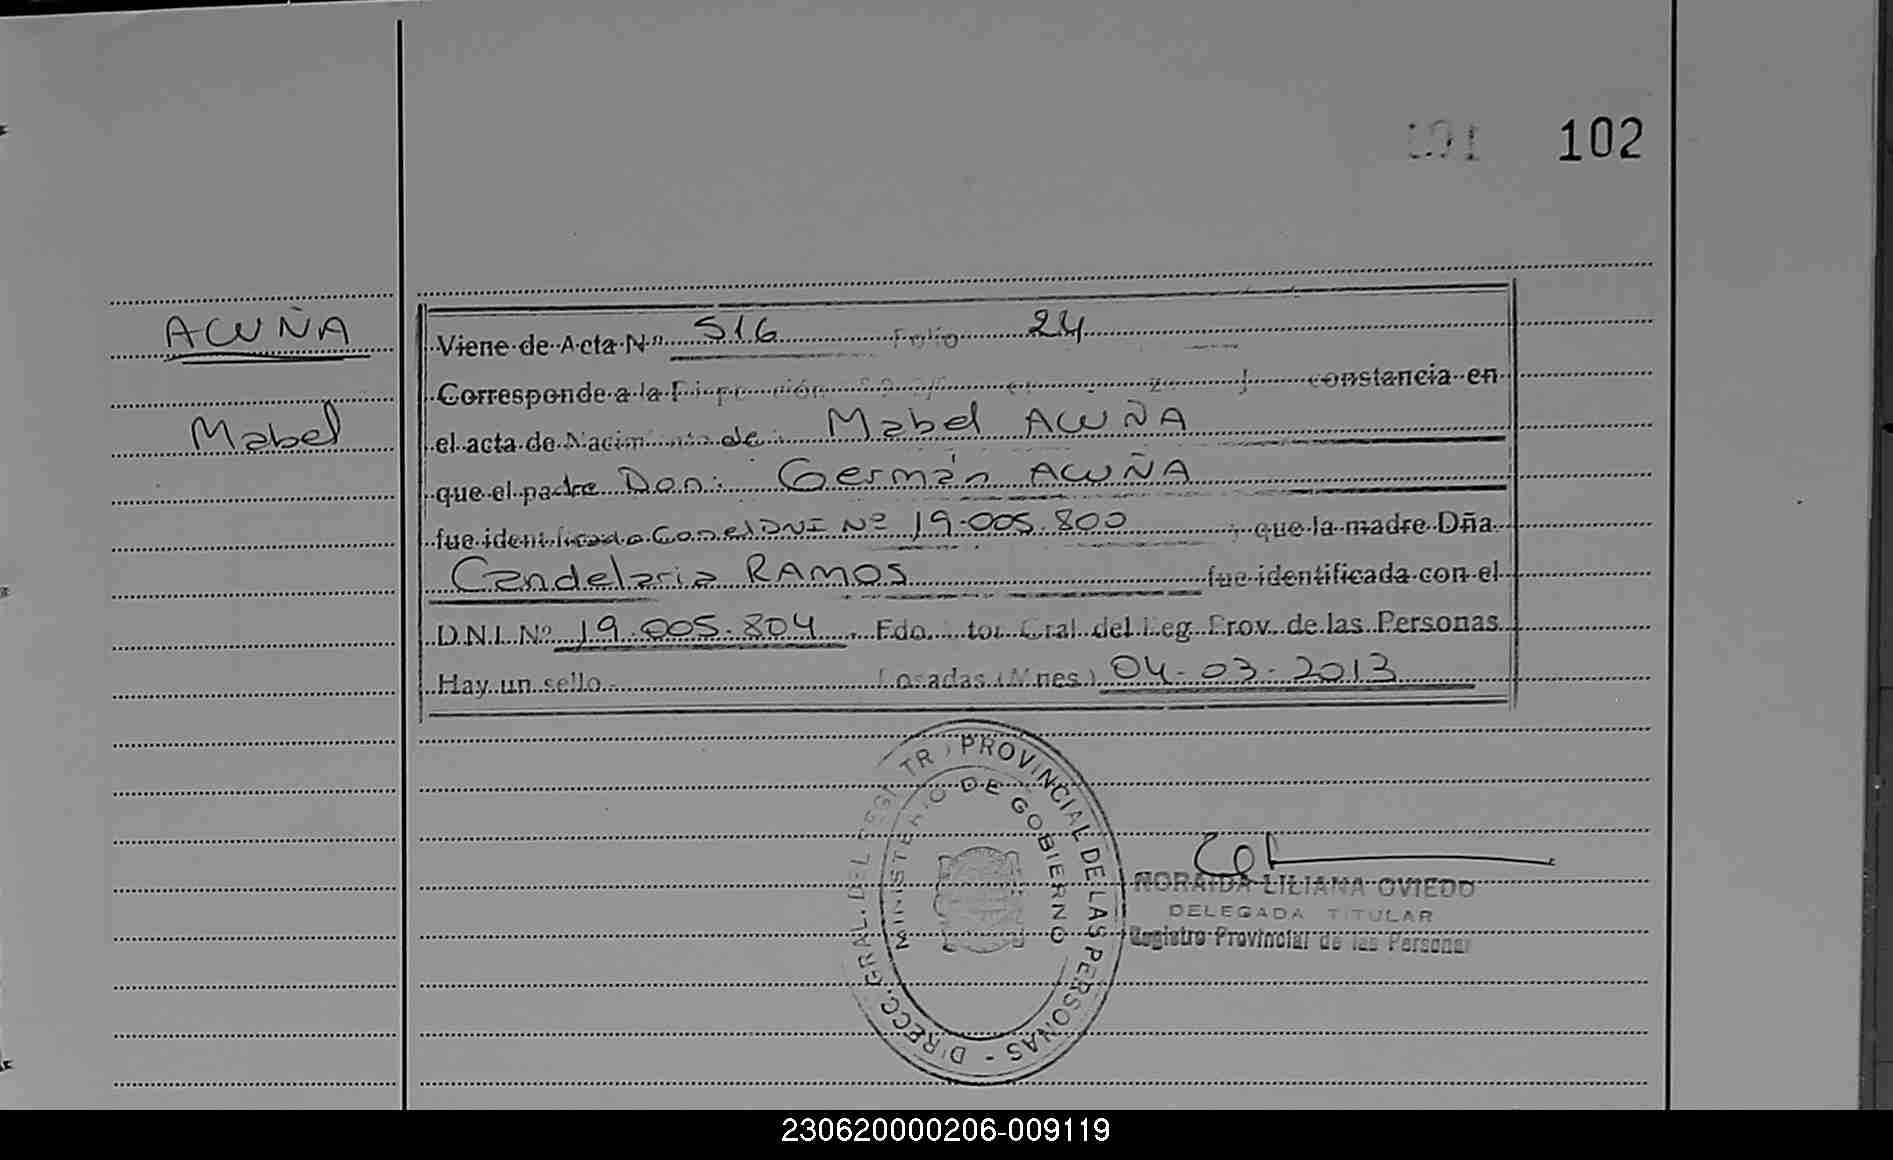 102
ACUÑA
Mabel
Viene de Acta Nº 516 Folio 24
Corresponde a la constancia en
el acta de Nacimiento de: Mabel ACUÑA
que el padre Don: Germán ACUÑA
fue identificado Con el DNI Nº 19.005.800, que la madre Dña.
Candelaria RAMOS fue identificada con el
D.N.I. Nº 19.005.804. Fdo. Gral. del Reg. Prov. de las Personas
Hay un sello.- Posadas (Mnes.) 04-03-2013
DIRECC. GRAL. DEL REGISTRO PROVINCIAL DE LAS PERSONAS -
MINISTERIO DE GOBIERNO
NORAIDA LILIANA OVIEDO
DELEGADA TITULAR
Registro Provincial de las Personas
230620000206-009119